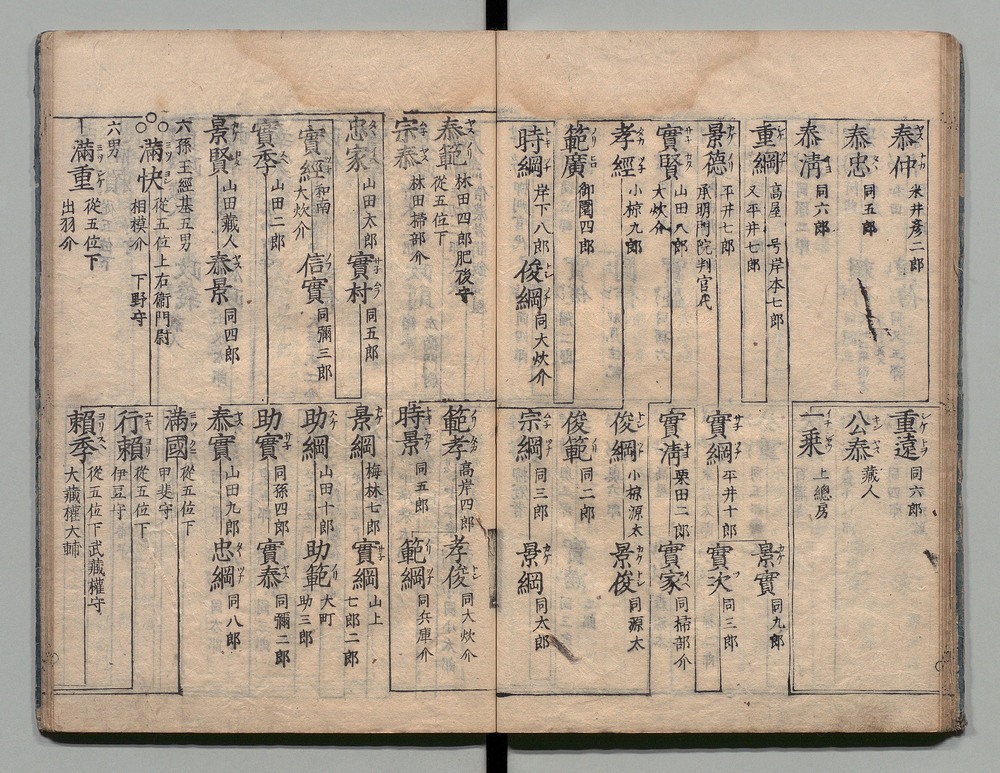 泰仲 米井彦二郎
泰忠 同五郎
泰淸 同六郎
重綱 高屋 号岸本七郎
又平井七郎
景德 平井七郎
承明門院判官代
實賢 山田八郎
大炊介
孝經 小椋九郎
範廣 御園四郎
時綱 岸下八郎 俊綱 同大炊介
重遠 同六郎
公泰 藏人
一乗 上總房
景實 同九郎
實綱 平井十郎 實次 同三郎
實淸 栗田二郎 實家 同掃部介
俊綱 小椋源太 景俊 同源太
俊範 同二郎
宗綱 同三郎 景綱 同太郎
泰範 林田四郎肥後守
從五位下
宗泰 林田掃部介
忠家 山田太郎 實村 同五郎
實經 和南
大炊介 信實 同彌三郎
實季 山田二郎
景賢 山田藏人 泰景 同四郎
六孫王經基五男
滿快 從五位上右衞門尉
相模介 下野守
六男
滿重 從五位下
出羽介
範孝 高岸四郎 孝俊 同大炊介
時景 同五郎 範綱 同兵庫介
景綱 梅林七郎 實綱 山上
七郎二郎
助綱 山田十郎 助範 大町
助三郎
助實 同孫四郎 實泰 同彌二郎
泰實 山田九郎 忠綱 同八郎
滿國 從五位下
甲斐守
行賴 從五位下
伊豆守
賴季 從五位下 武藏權守
大藏權大輔